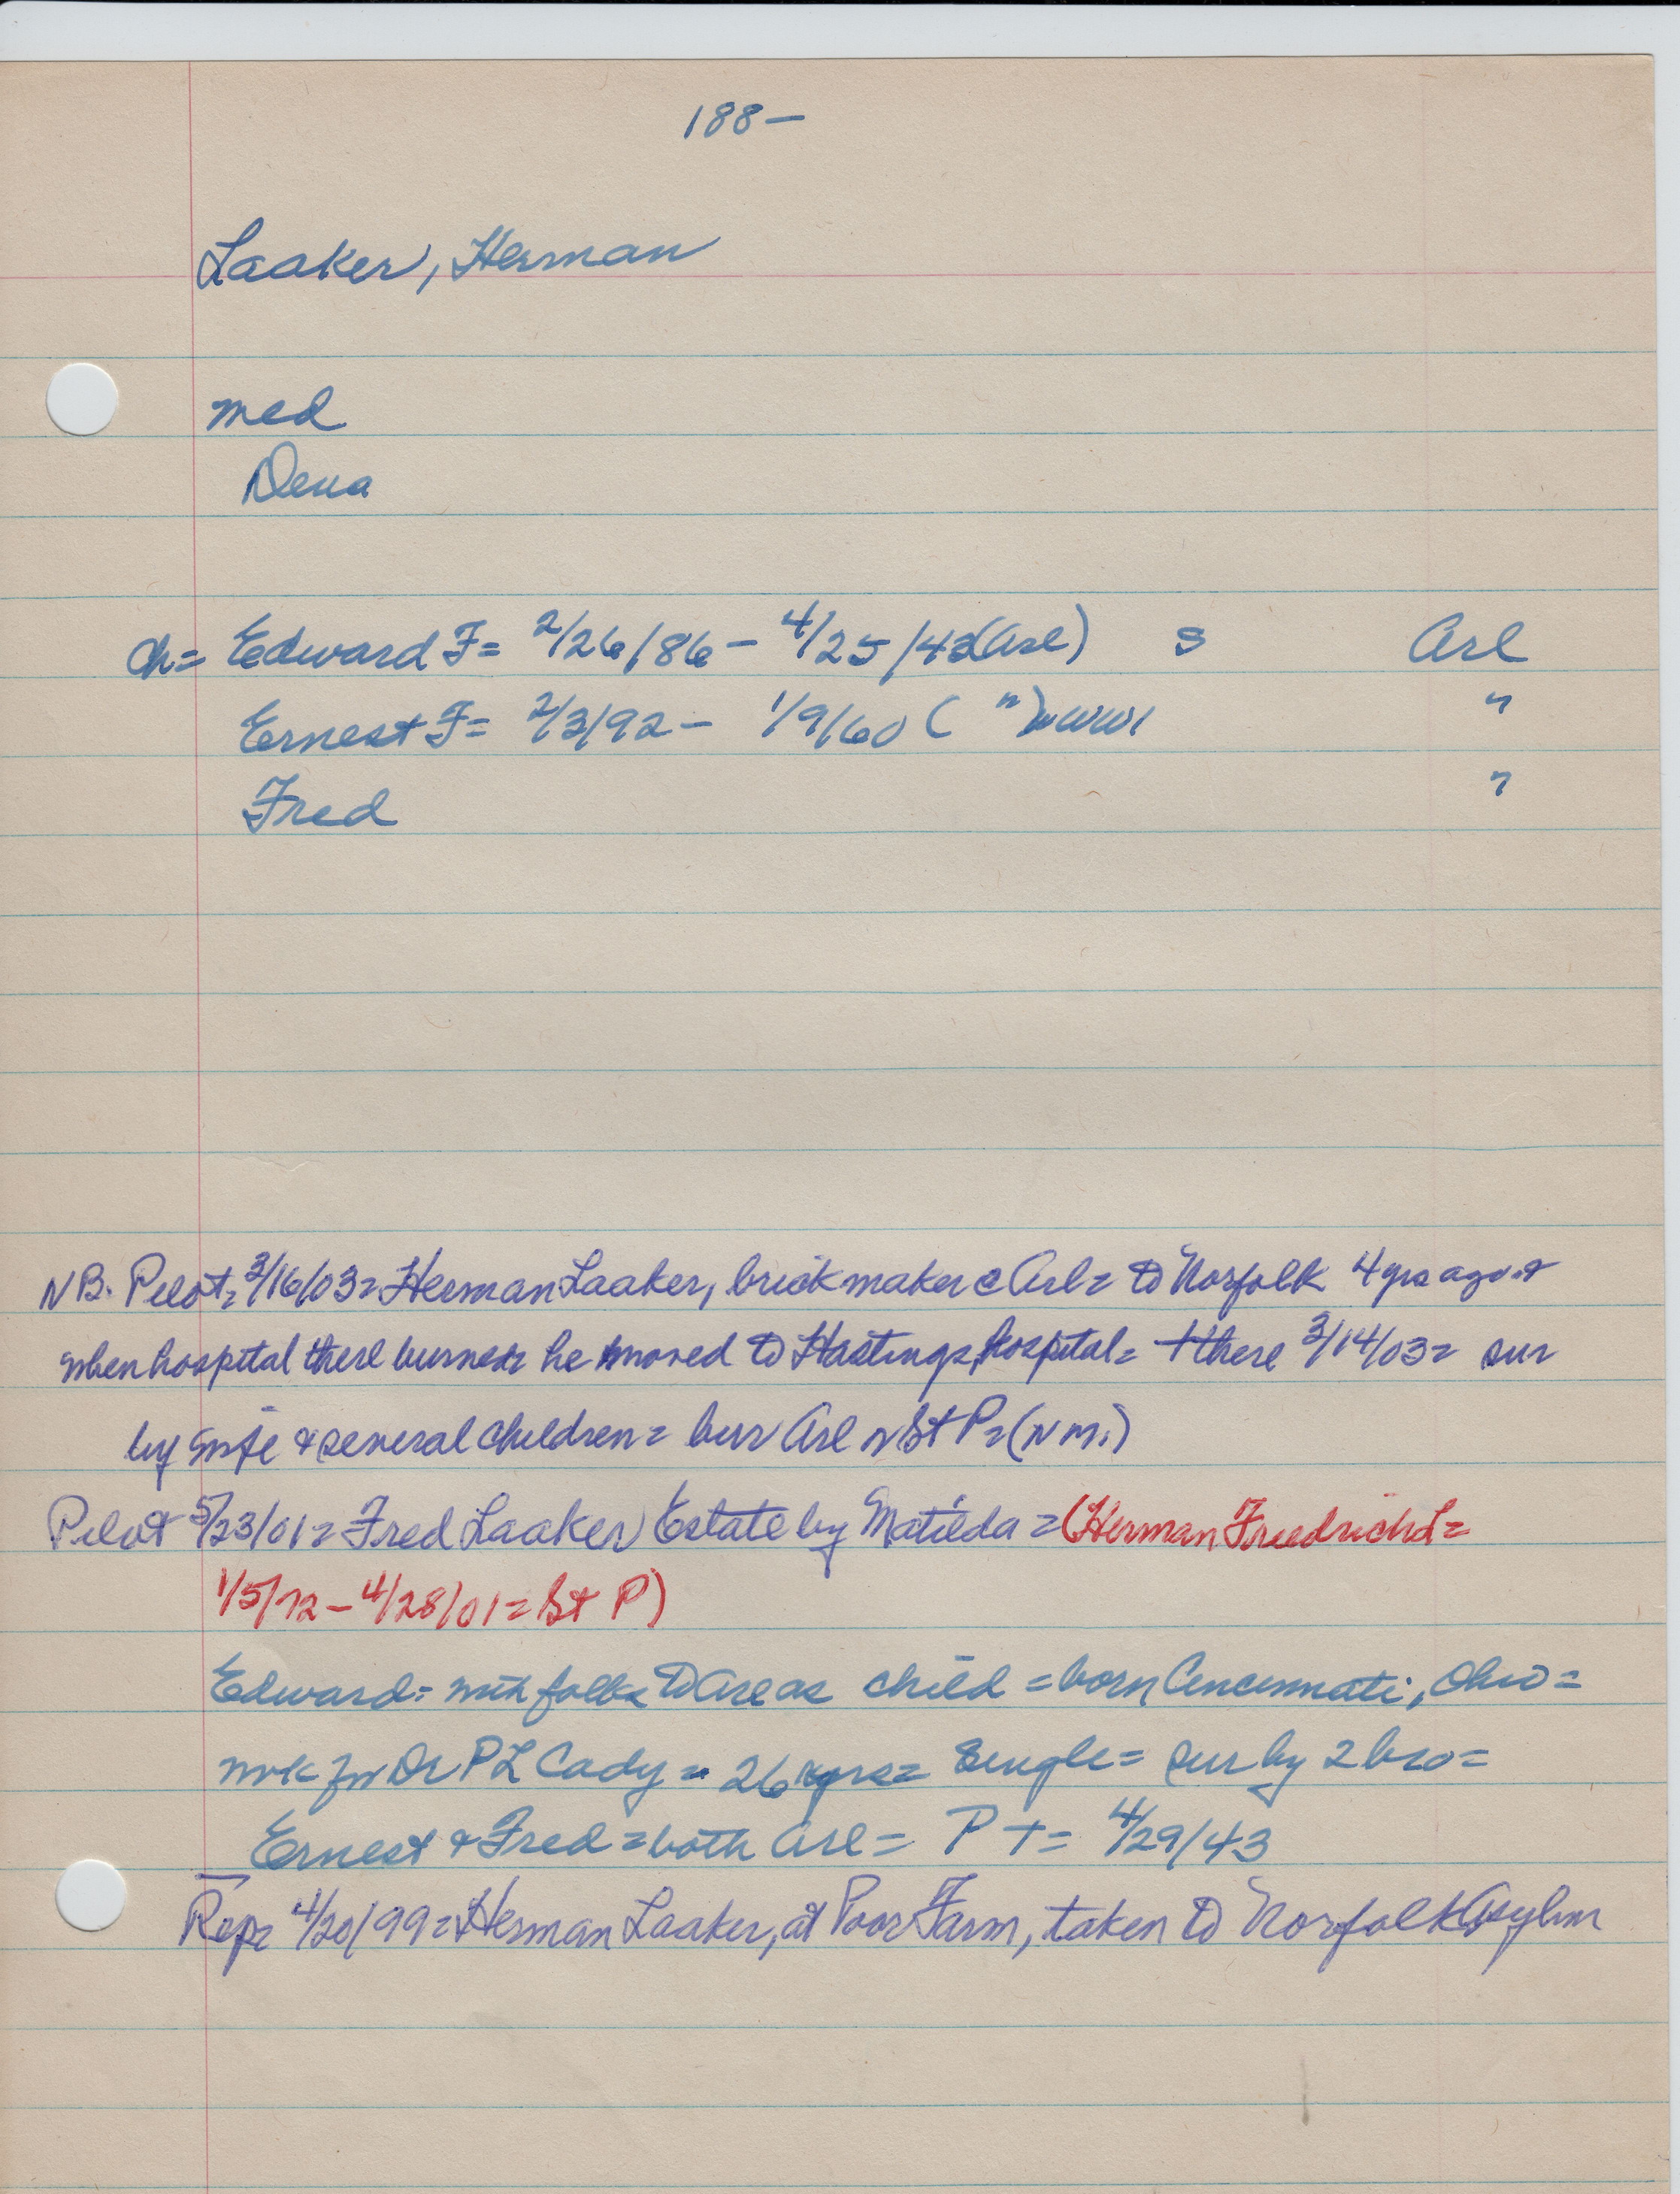 188-
Laaker, Herman
med
Dena
ch= Edward F= 2/26/86 - 4/25/43(Arl) S Arl
Ernest F= 2/3/92 - 1/9/60 ( " ) WW1 "
Fred "
NB. Pilot= 3/16/03= Herman Laaker, brick maker @ Arl= to Norfolk 4 yrs ago &
when hospital there burned he moved to Hastings hospital= + there 3/14/03= sur
by wife & several children= bur Arl St P= (N m.)
Pilot 5/23/01= Fred Laaker Estate by Matilda = (Herman Friedrich L=
1/5/72 - 4/28/01= St P)
Edward= with folks to Arl as child = born Cincinnati, Ohio=
work for Dr P L Cady = 26 yrs= Single= sur by 2 bro=
Ernest & Fred = both Arl= P T= 4/29/43
Rep= 4/20/99= Herman Laaker, at Poor Farm, taken to Norfolk Asylum